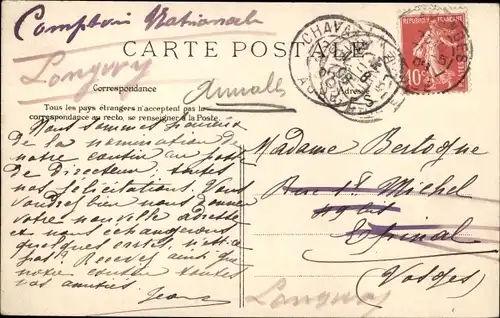 Comptoir Nationale
CARTE POSTALE
Longwy
Correspondance
Adresse
Annulé
Tous les pays étrangers n'acceptent pas la
correspondance au recto, se renseigner à la Poste.
REPUBLIQUE FRANÇAISE
10
POSTES
CHAVA
Nous sommes
de la nomination de
notre cousin au poste
de Directeur, toutes
nos félicitations. Vous
voudrez bien nous donner
votre nouvelle adresse
et nous échangerons
quelques cartes, n'est-ce
pas? Recevez ainsi que
notre cousin toutes
vos amitiés.
Jean
Madame Bertogne
Rue St Michel
bis
Epinal
(Vosges)
Longwy